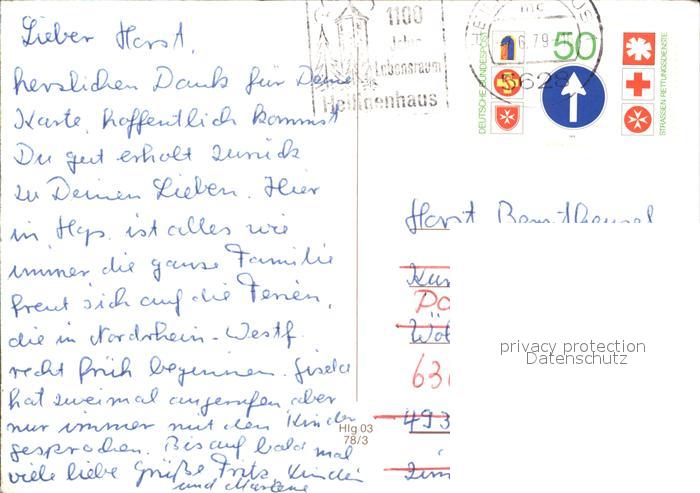 Lieber Horst,
herzlichen Dank für Deine
Karte, hoffentlich kommst
Du gut erholt zurück
zu Deinen Lieben. Hier
in Hgs. ist alles wie
immer die ganze Familie
freut sich auf die Ferien,
die in Nordrhein-Westf.
recht früh beginnen. Gisela
hat zweimal angerufen aber
nur immer mit den Kinder
gesprochen. Bis auf bald mal
viele liebe Grüße Fritz, Kinder
und Marlene
1100
Jahre
Lebensraum
Heiligenhaus
6.79
5628
DEUTSCHE BUNDESPOST
50
STRASSEN RETTUNGSDIENSTE
Horst
63
493
privacy protection
Datenschutz
Hlg 03
78/3